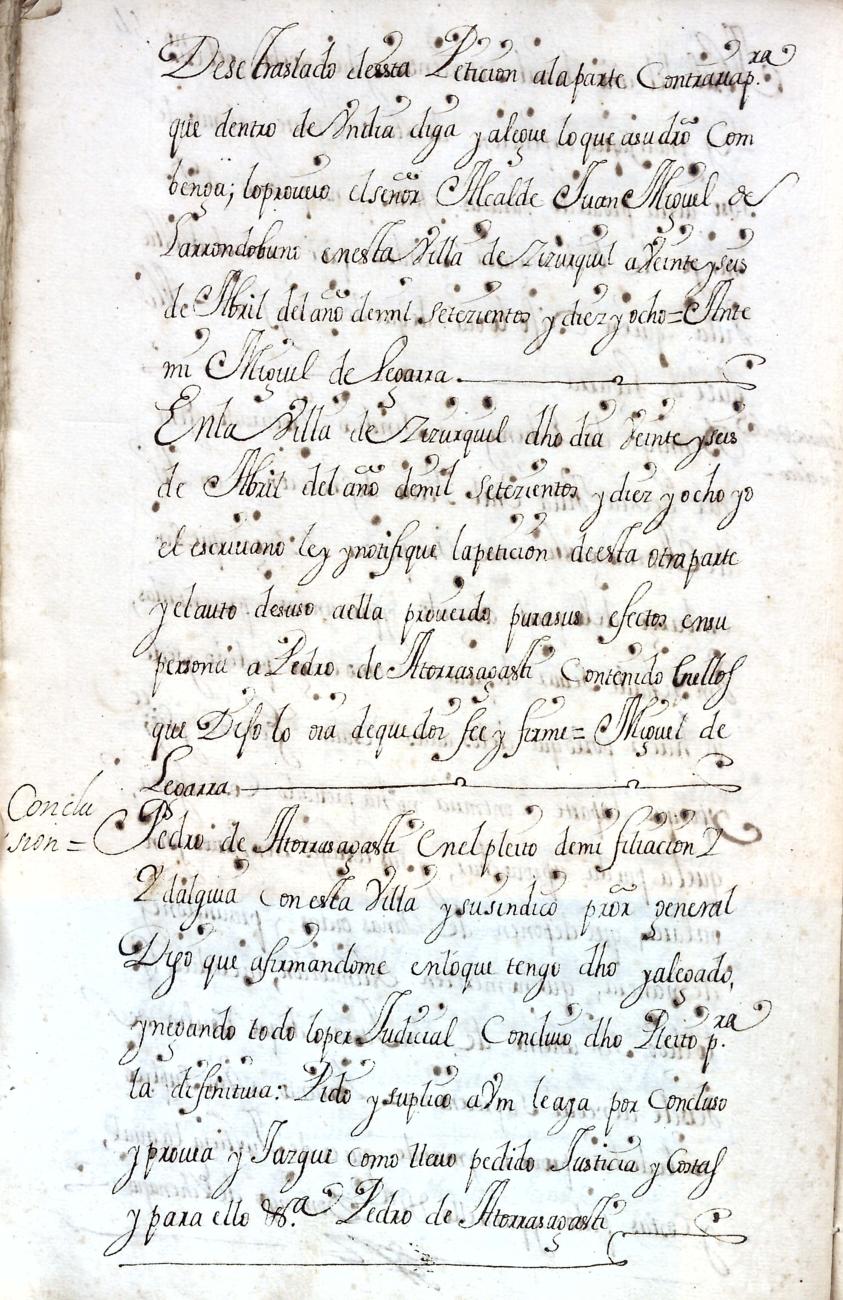 Dese traslado dessta Peticion ala parte Contraria p.ra
que dentro de Vndia diga y alegue lo que asu dro Com
benga; loproueio el señor Alcalde Juan Miguel de
Larrondobuno enesta Villa de Zizurquil a Veinte y seis
de Abril del año demil setezientos y diez y ocho = Ante
mi Miguel de Legarra.
Enla Villa de Zizurquil dho dia Veinte y seis
de Abril del año demil setezientos y diez y ocho yo
el escriuano ley y notifique lapeticion deesta otra parte
y el auto desuso aella proueido, parasus efectos ensu
persona a Pedro de Atorrasagasti Contenido Enellos
que Dijo lo oia dequedoi fee y firme = Miguel de
Legarra.
Conclu
sion =
Ps
Pedro de Atorrasagasti Enel pleito demi filiacion Y
Ydalguia Con esta Villa y su sindico pror general
Digo que afirmandome enloque tengo dho y alegado,
y negando todo loper Judicial Concluio dho Pleito p.ra
la difinitiua: Pido y suplico a Vm le aga por Concluso
y prouea y Jazgue como lleuo pedido Justicia y Costas
y para ello &.a Pedro de Atorrasagasti